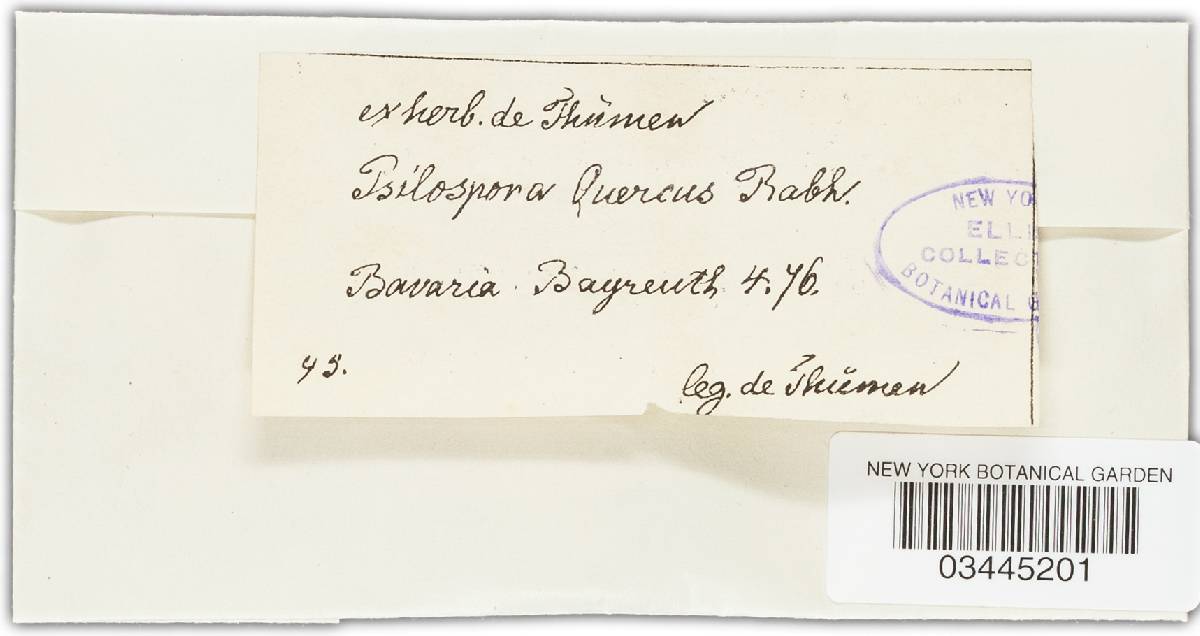 ex herb. de Thümen
Psilospora Quercus Rabh.
Bavaria. Bayreuth 4.76.
45.
leg. de Thümen
NEW YO
ELLI
COLLECT
BOTANICAL G
NEW YORK BOTANICAL GARDEN
03445201